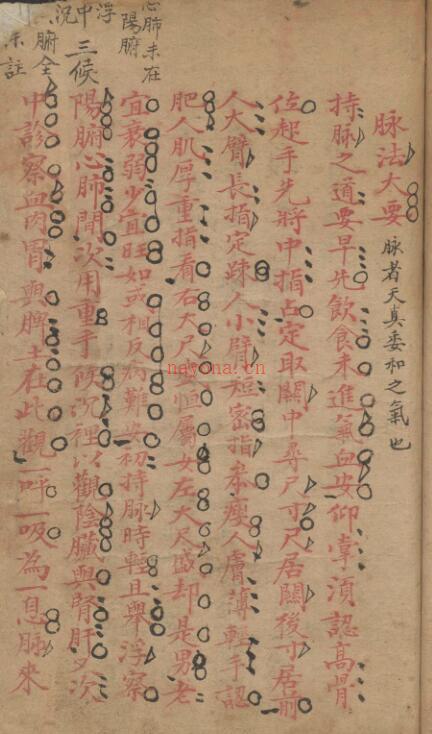 脉法大要 脉者天真委和之氣也
持脉之道要早先飲食未進氣血安仰掌須認高骨
位起手先將中指占定取關中尋尺寸尺居關後寸居前
人大臂長指定疎人小臂短密指求瘦人膚薄輕手認
肥人肌厚重指看右大尺盛恒屬女左大尺盛却是男老
心肺未在
陽腑
宜衰弱少宜旺如或相反病難安初持脉時輕且舉浮察
浮
中
況
三候
陽腑心肺間次用重手候沉裡以觀陰臟與腎肝又次
腑全
未註
中診察血肉胃與脾土在此觀一呼一吸為一息脉來
nayona.cn